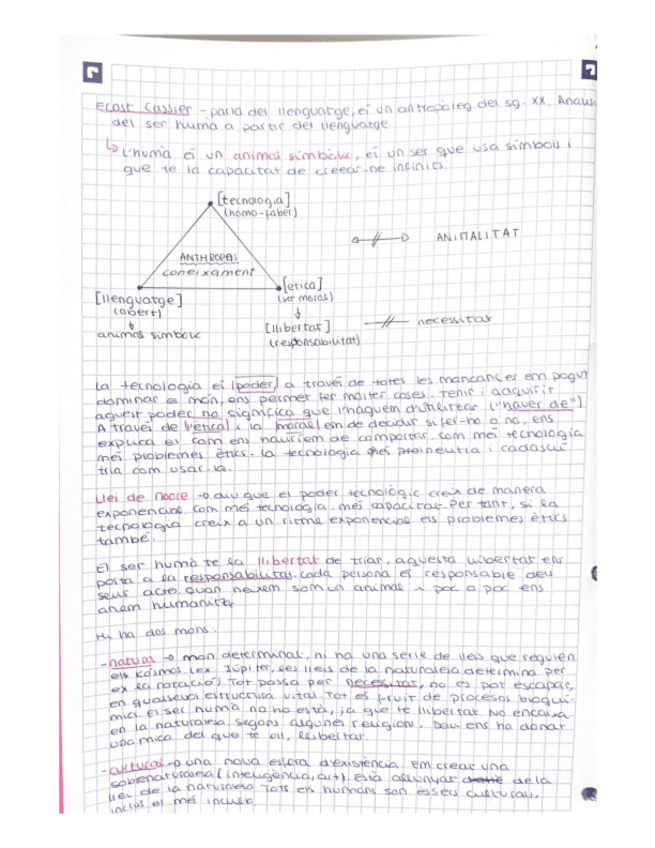 Ernst Cassier - parla del llenguatge, és un antropòleg del sg. XX. Analisi
del ser humà a partir del llenguatge.
L'humà és un animal simbòlic, és un ser que usa símbols i
que te la capacitat de creear-ne infinits.
[tecnologia]
(homo-faber)
ANIMALITAT
ANTHROPOS
coneixament
[llenguatge]
(obert)
animal simbòlic
[ètica]
(ser moral)
[llibertat]
(responsabilitat)
necessitat
La tecnologia és poder, a través de totes les mancances em pogut
dominar el món, ens permet fer moltes coses. Tenir i adquirir
aquest poder no significa que l'haguem d'utilitzar ("haver de")
A través de l'ètica i la moral em de decidir si fer-ho o no, ens
explica el com ens hauríem de comportar. Com més tecnologia
més problemes ètics. La tecnologia és neutra i cadascú
tria com usar-la.
Llei de Moore → diu que el poder tecnològic creix de manera
exponencial. Com més tecnologia, més capacitat. Per tant, si la
tecnologia creix a un ritme exponencial els problemes ètics
també.
El ser humà te la llibertat de triar, aquesta llibertat ens
porta a la responsabilitat, cada persona és responsable dels
seus actes. Quan neixem som un animal i poc a poc ens
anem humanitzant
Hi ha dos mons:
-natural → món determinat, hi ha una sèrie de lleis que regulen
els kósmos (ex. Júpiter, les lleis de la naturalesa determina per
ex la rotació) Tot passa per necessitat, no es pot escapar,
en qualsevol estructura vital. Tot és fruit de processos bioquí-
mics. El ser humà no ho està, ja que te llibertat. No encaixa
en la naturalesa, segons algunes religions, Deu ens ha donat
una mica del que te ell, llibertat.
-cultural → una nova esfera d'existència. Em creat una
sobrenaturalesa (intelìgència, art). Està allunyat de la
llei de la naturalesa. Tots els humans som éssers culturals,
inclòs el més incult.